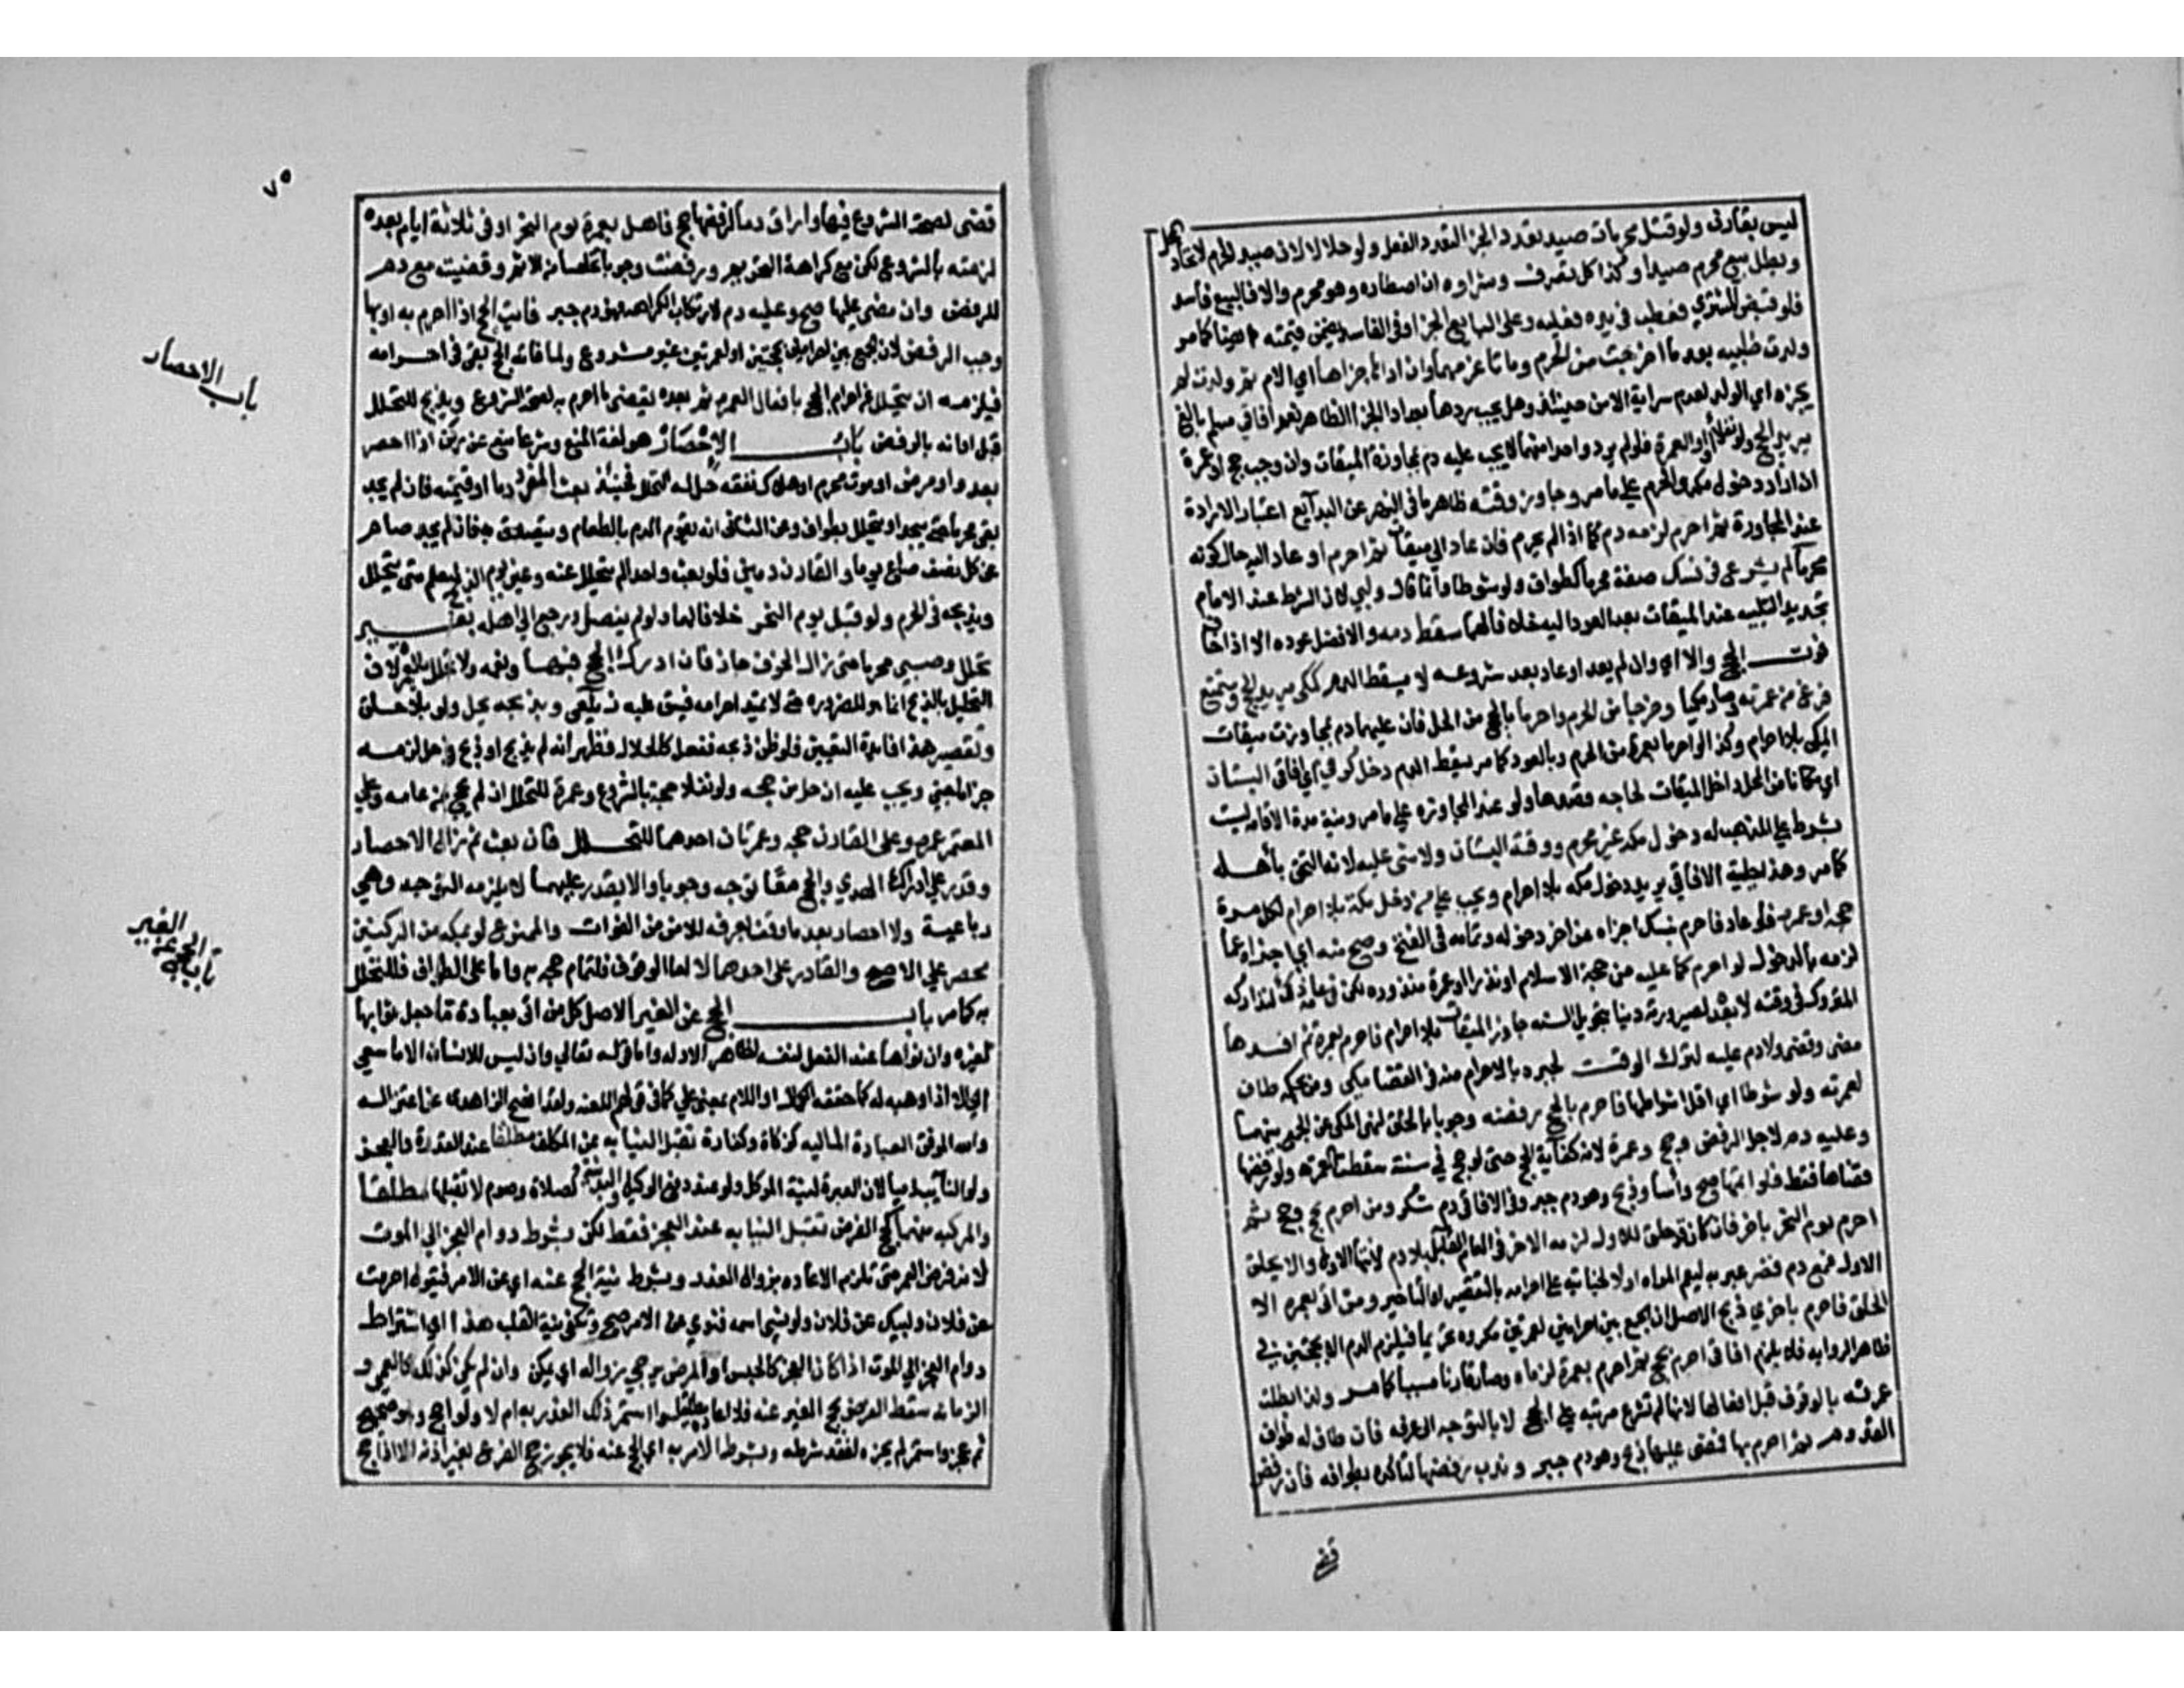 ليس بقارن ولو قتل محرمان صيد تعدد الجزا لتعدد الفعل ولو حلالان لا لان صيد الحرم لاتحاد المحل
وبطل بيع محرم صيدا وكذا كل تصرف وشراوه ان اصطاده وهو محرم والا فالبيع فاسد
فلو قبض المشتري فعطب في يده فعليه وعلى البايع الجزا وفي الفاسد يضمن قيمته ايضا كما مر
ولدت ظبية بعد ما اخرجت من الحرم وماتا غرمهما وان ادا جزاها اي الام ثم ولدت لم
يجزه اي الولد لعدم سراية الامن حينئذ وهل يجب ردها بعد ادا الجزا الظاهر نعم افاقي مسلم بالغ
يريد الحج ولو نفلا او العمرة فلو لم يرد واحدا منهما لا يجب عليه دم بمجاوزة الميقات وان وجب حج او عمرة
اذا اراد دخول مكه والحرم على ما مر وجاوز وقته ظاهر ما في النهر عن البدايع اعتبار الارادة
عند المجاوزة ثم احرم لزمه دم كما اذا لم يحرم فان عاد الى ميقات ثم احرم او عاد اليه حال كونه
محرما لم يشرع في نسك صفة محرما كطواف ولو شوطا وانما قال ولبى لان الشرط عند الامام
تجديد التلبيه عند الميقات بعد العود اليه خلافا لهما سقط دمه والافضل عوده الا اذا خاف
فوت الحج والا اي وان لم يعد او عاد بعد شروعه لا يسقط الدم كمكي يريد الحج ومتمتع
فرغ من عمرته وصار مكيا وخرجا من الحرم واحرما بالحج من الحل فان عليهما دم لمجاوزت ميقات
المكي بلا احرام وكذا لو احرما بعمرة من الحرم وبالعود كما مر يسقط الدم دخل كوفي اي افاقي البستان
اي مكانا من الحل داخل الميقات لحاجه قصدها ولو عند المجاوزه على ما مر ونية مدة الاقامه ليست
بشرط على المذهب له دخول مكه غير محرم ووقته البستان ولا شي عليه لانه التحق بأهله
كما مر وهذ حيلة لافاقي يريد دخول مكه بلا احرام ويجب على من دخل مكة بلا احرام لكل مرة
حجه او عمره فلو عاد فاحرم بنسك اجزاه عن اخر دخوله وتمامه في الفتح وصح منه اي اجزاه عما
لزمه بالدخول لو احرم عما عليه من حجة الاسلام او نذر او عمرة منذوره لكن في عامه ذلك لتداركه
المتروك في وقته لا بعده لصيرورته دينا بتحويل السنه جاوز الميقات بلا احرام فاحرم بعمرة ثم افسدها
مضى وقضى ولا دم عليه لترك الوقت لجبره بالاحرام منه في القضا مكي ومن بحكمه طاف
لعمرته ولو شوطا اي اقل اشواطها فاحرم بالحج رفضه وجوبا بالحلق لنهي المكي عن الجمع بينهما
وعليه دم لاجل الرفض وحج وعمرة لانه كفائت الحج حتى لو حج في سنته سقطت العمره ولو رفضها
قضاها فقط فلو اتمها صح وأسا وذبح وهو دم جبر وفي الافاقي دم شكر ومن احرم بحج وحج ثم
احرم يوم النحر باخر فان كان قد حلق للاول لزمه الاخر في العام القابل بلا دم لانتها الاول والا يحلق
الاول فمع دم قصر عبر به ليعم المراه او لا لجنايته على احرامه بالتقصير او التأخير ومن اتى بعمرة الا
الحلق فاحرم باخرى ذبح الاصل ان الجمع بين احرامين لعمرتين مكروه تحريما فيلزم الدم لا لحجتين في
ظاهر الروايه فلا يلزم افاقي احرم بحج ثم احرم بعمرة لزماه وصار قارنا مسيأ كما مر ولذا بطلت
عمرته بالوقوف قبل افعالها لانها لم تشرع مرتبة على الحج لا بالتوجه الى عرفه فان طاف له طواف
القدوم ثم احرم بها فمضى عليهما ذبح وهو دم جبر وندب رفضها لتاكده بطوافه فان رفض
قضى
٧٥
قضى لصحة الشروع فيها واراق دما لرفضها حج فاهل بعمرة يوم النحر او في ثلاثة ايام بعده
لزمته بالشروع لكن مع كراهة التحريم ورفضت وجوبا تخلصا من الاثم وقضيت مع دم
للرفض وان مضى عليها صح وعليه دم لارتكاب الكراهه فهو دم جبر فايت الحج اذا احرم به او بها
وجب الرفض لان الجمع بين احرامين لحجتين او لعمرتين غير مشروع ولما فاته الحج بقي في احرامه
فيلزمه ان يتحلل عن احرام الحج بافعال العمره ثم بعده يقضي ما احرم به لصحة الشروع ويذبح للتحلل
قبل اوانه بالرفض باب الاحصار هو لغة المنع وشرعا منع عن ركن اذا احصر
بعدو او مرض او موت محرم او هلاك نفقه حل له التحلل فحينئذ بعث المفرد دما او قيمته فان لم يجد
بقي محرما حتى يجد او يتحلل بطواف وعن الثاني انه يقوم الدم بالطعام ويتصدق به فان لم يجد صام
عن كل نصف صاع يوما والقارن دمين فلو بعث واحدا لم يتحلل عنه وعين يوم الذبح ليعلم متى يتحلل
ويذبحه في الحرم ولو قبل يوم النحر خلافا لهما ولو لم يفعل ورجع الى اهله بغير
تحلل وصبر محرما حتى زال الخوف جاز فان ادرك الحج فبها ونعمه ولا تحلل بالعمرة لان
التحليل بالذبح انما هو للضروره حتى لا يمتد احرامه فيشق عليه زيلعي وبذبحه يحل ولو بلا حلق
وتقصير هذا فايدة التعيين فلو ظن ذبحه ففعل كالحلال فظهر انه لم يذبح او ذبح في حل لزمه
جزا ما جنى ويجب عليه ان حل من حجه ولو نفلا حجة بالشروع وعمرة للتحلل ان لم يحج من عامه وعلى
المعتمر عمره وعلى القارن حجه وعمرتان احدهما للتحلل فان بعث ثم زال الاحصار
وقدر على ادراك الهدي والحج معًا توجه وجوبا والا يقدر عليهما لا يلزمه التوجه وهي
رباعية ولا احصار بعد ما وقف بعرفه للامن من الفوات والممنوع لو بمكه من الركنين
محصر على الاصح والقادر على احدهما لا اما الوقوف فلتمام حجه به واما على الطواف فللتحلل
به كما مر باب الحج عن الغير الاصل كل من اتى بعبادة ما جعل ثوابها
لغيره وان نواها عند الفعل لنفسه لظاهر الادله واما قوله تعالى وان ليس للانسان الا ما سعى
اي الا اذا وهبه له كما حققه الكمال او اللام بمعنى على كما في قوله لهم اللعنه ولقد افصح الزاهدي عن اعتزاله
والله الموفق العبادة الماليه كزكاة وكفارة تقبل النيابه عن المكلف مطلقا عند القدرة والعجز
ولو النايب ذميا لان العبرة لنية الموكل ولو عند دفع الوكيل والبدنية كصلاة وصوم لا تقبلها مطلقا
والمركبه منهما كحج الفرض تقبل النيابه عند العجز فقط لكن بشرط دوام العجز الى الموت
لانه فرض العمر حتى تلزم الاعاده بزوال العذر وبشرط نية الحج عنه اي عن الآمر فيقول احرمت
عن فلان ولبيك عن فلان ولو نسي اسمه فنوى عن الامر صح وتكفي نية القلب هذا اي اشتراط
دوام العجز الى الموت اذا كان العجز كالحبس والمرض يرجى زواله اي يمكن وان لم يكن كذلك كالعمى و
الزمانه سقط الفرض بحج الغير عنه فلا اعاده مطلقا سوا استمر ذلك العذر به ام لا ولو احج وهو صحيح
ثم عجز واستمر لم يجزه لفقد شرطه وبشرط الامر به اي بالحج عنه فلا يجوز حج الغير بغير اذنه الا اذا حج
باب الاحصار
باب الحج عن الغير